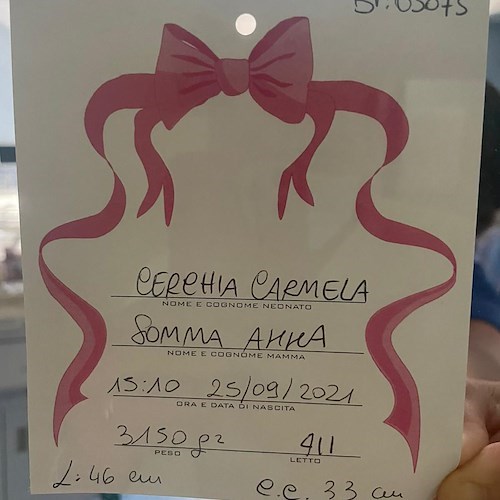 Br. 03075
CERCHIA CARMELA
NOME E COGNOME NEONATO
SOMMA ANNA
NOME E COGNOME MAMMA
15:10 25/09/2021
ORA E DATA DI NASCITA
3150 gr 411
PESO LETTO
L: 46 cm c.c. 33 cm